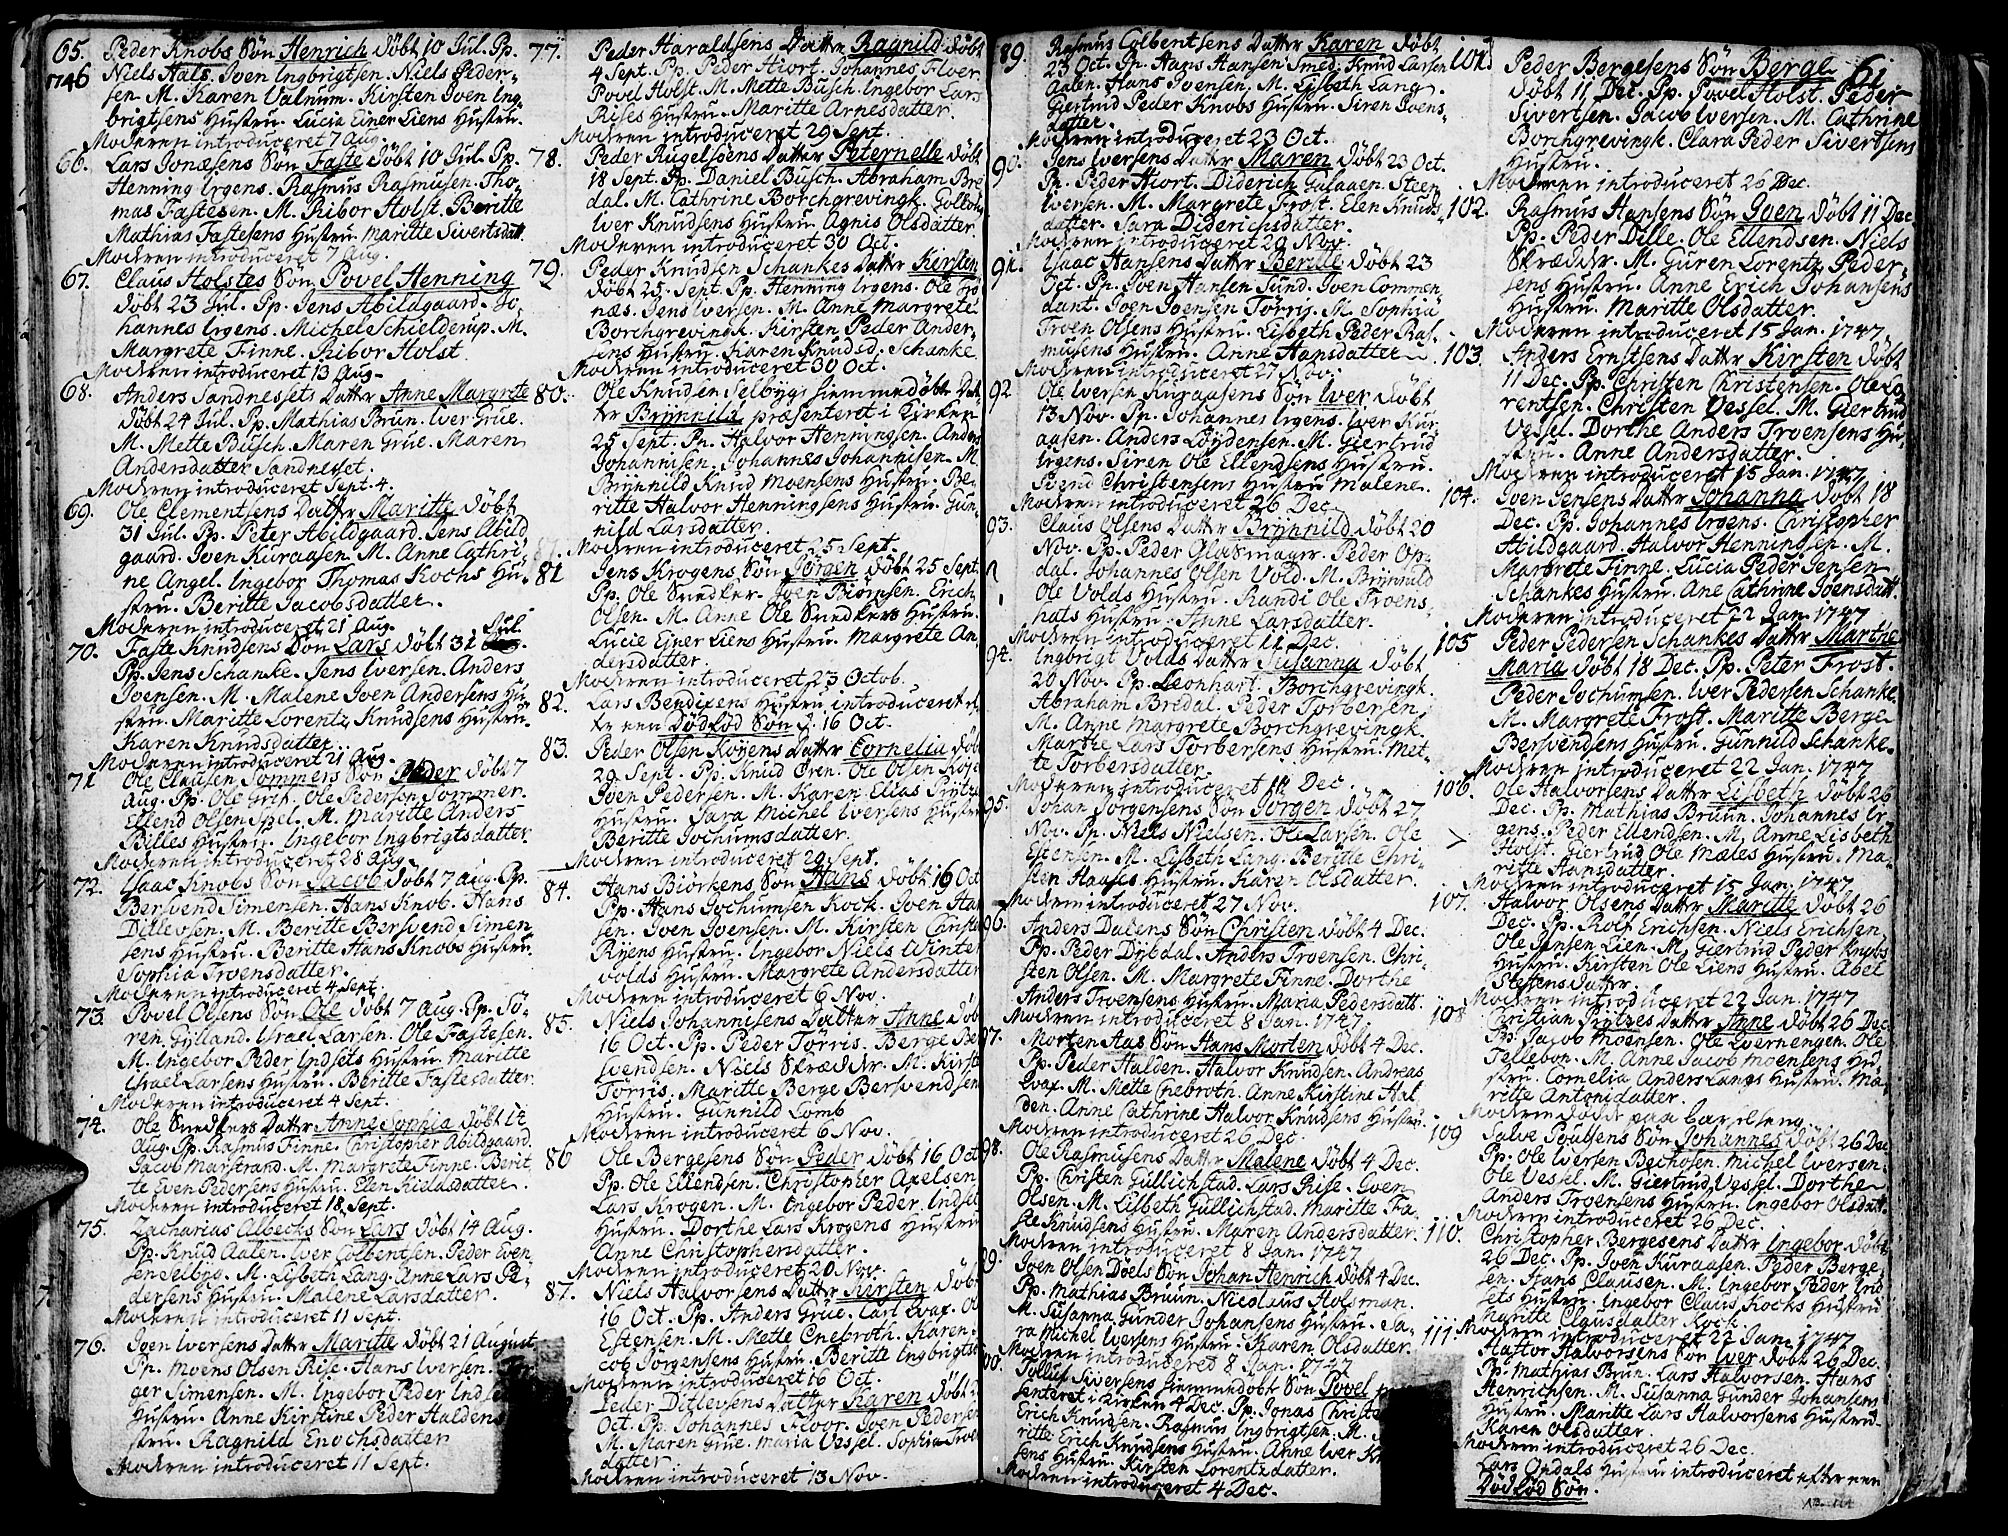 65. Peder Knobs Søn Henrich døbt 10 Jul. Pp.
1746 Niels Hals. Iven Ingbrigtsen. Niels Peder-
sen. M. Karen Valnum. Kirsten Iven Ing
brigtsens Hustru. Lucia Einer Liens Hustru.
Moderen introduceret 7 Aug.
66. Lars Jonæsens Søn Faste døbt 10 Jul. Pp.
Henning Irgens. Rasmus Rasmusen. Tho-
mas Fastesen. M. Ribor Holst. Beritte
Mathias Fastesens Hustru. Maritte Sivertsdatt.
Moderen introduceret 7 Aug.
67. Claus Holstes Søn Povel Henning
døbt 23 Jul. Pp. Jens Abildgaard. Jo-
hannes Irgens. Michel Schielderup. M.
Margrete Finne. Ribor Holst.
Moderen introduceret 13 Aug.
68. Anders Sandnessets Datter Anne Margrete
døbt 24 Jul. Pp. Mathias Brun. Iver Grue.
M. Mette Busch. Maren Grue. Maren
Andersdatter Sandnesset.
Moderen introduceret Sept. 4.
69. Ole Clementsens Datter Maritte døbt
31 Jul. Pp. Peter Abildgaard. Jens Abild
gaard. Iven Kuraasen. M. Anne Cathri-
ne Angel. Ingebor Thomas Kochs Hu-
stru. Beritte Jacobsdatter.
Moderen introduceret 21 Aug.
70. Faste Knudsens Søn Lars døbt 31 Jul.
Pp. Jens Schanke. Jens Iversen. Anders
Ivensen. M. Malene Iven Andersens Hu
stru. Maritte Lorentz Knudsens Hustru.
Karen Knudsdatter.
Moderen introduceret 21 Aug.
71 Ole Clausen Sommers Søn Peder døbt 7
Aug. Pp. Ole Grif. Ole Pedersen Sommer.
Ellend Olsen Spel. M. Maritte Anders
Billes Hustru. Ingebor Ingbrigtsdatter.
Moderen introduceret 28 Aug.
72. Isaac Knobs Søn Jacob døbt 7 Aug. Pp.
Bersvend Simensen. Hans Knob. Hans
Ditlevsen. M. Beritte Bersvend Simen
sens Hustru. Beritte Hans Knobs Hustru.
Sophia Troensdatter.
Moderen introduceret 4 Sept.
73. Povel Olsens Søn Ole døbt 7 Aug. Pp. Sö-
ren Gylland. Israel Larsen. Ole Fastesen.
M. Ingebor Peder Indsets Hustru. Maritte
Israel Larsens Hustru. Beritte Fastesdatter.
Moderen introduceret 4 Sept.
74. Ole Snedkers Datter Anne Sophia døbt 14
Aug. Pp. Rasmus Finne. Christopher Abildgaard.
Jacob Marstrand. M. Margrete Finne. Berit
te Even Pedersens Hustru. Elen Kieldsdatter.
Moderen introduceret 18 Sept.
75. Zacharias Albechs Søn Lars døbt 14 Aug.
Pp. Knud Aalen. Iver Colbentsen. Peder Even
sen Selbyg. M. Lisbeth Lang. Anne Lars Pe-
dersens Hustru. Malene Larsdatter.
Moderen introduceret 11 Sept.
76. Iven Iversens Datter Maritte døbt 21 August.
Pp. Moens Olsen Rise. Hans Iversen.
ger Simensen. M. Ingebor Peder Indse
Hustru. Anne Kirstine Peder Halden
stru. Ragnild Enochsdatter
Moderen introduceret 11 Sept.
77. Peder Haraldsens Datter Ragnild døbt
4 Sept. Pp. Peder Hiort. Johannes Floer.
Povel Holst. M. Mette Busch. Ingebor Lars
Rises Hustru. Maritte Arnesdatter.
Moderen introduceret 29 Sept.
78. Peder Rugelsöens Datter Peternelle døbt
18 Sept. Pp. Daniel Busch. Abraham Bre
dal. M. Cathrine Borchgrevingk.
Iver Knudsens Hustru. Agnis Olsdatter
Moderen introduceret 30 Oct.
79. Peder Knudsen Schankes Datter Kirsten
døbt 25. Sept. Pp. Henning Irgens. Ole Jo
næs. Jens Iversen. M. Anne Margrete
Borchgrevingk. Kirsten Peder Ander-
sens Hustru. Karen Knudsd. Schanke
Moderen introduceret 30 Oct.
80. Ole Knudsen Selbygs hiemmedøbte Dat-
ter Brynnild præsenteret i Kirken
25 Sept. Pp. Halvor Henningsen. Anders
Johannisen. Johannes Johannisen. M.
Brynnild Knud Moensens Hustru. Be-
ritte Halvor Henningsens Hustru. Gun-
nild Larsdatter.
Moderen introduceret 25 Sept.
81 Jens Krogens Søn Jörgen døbt 25 Sept.
Pp. Ole Snedker. Joen Biörnsen. Erich
Olsen. M. Anne Ole Snedkers Hustru.
Lucie Einer Liens Hustru. Margrete An
dersdatter.
Moderen introduceret 23 Octob.
82. Lars Bendixens Hustru introduceret ef
ter en Dødfød Søn d. 16 Oct.
83. Peder Olsen Koyens Datter Cornelia døbt
29 Sept. Pp. Knud Oren. Ole Olsen Koye
Iven Pedersen. M. Karen Elias Pritzes
Hustru. Sara Michel Iversens Hustru
Beritte Jochumsdatter.
Moderen introduceret 29 Sept.
84. Hans Biörkens Søn Hans døbt 16 Oct
Pp. Hans Jochumsen Kock. Iven Han
sen. Iven Ivensen. M. Kirsten Christe
Ryens Hustru. Ingebor Niels Winter
volds Hustru. Margrete Andersdatter
Moderen introduceret 6 Nov.
85. Niels Johannisens Datter Anne døb
16 Oct. Pp. Peder Törris. Berge Ber
svendsen. Niels Skrædder. M. Kirste
Törris. Maritte Berge Bersvendsen
Hustru. Gunnild Lomb
Moderen introduceret 6 Nov.
86 Ole Bergesens Søn Peder døbt 16 Oct
Pp. Ole Ellendsen. Christopher Axelsen
Lars Krogen. M. Ingebor Peder Indset
Hustru. Dorthe Lars Krogens Hustru
Anne Christophersdatter.
Moderen introduceret 20 Nov.
87. Niels Halvorsens Datter Kirsten døbt
16 Oct. Pp. Anders Grue. Carl Lvax. Ol
Estensen. M. Mette Cnebroth. Karen
cob Jörgensens Hustru. Beritte Ingbrigtsd
Moderen introduceret 16 Oct.
Peder Ditlevsens Datter Karen døbt 2
Oct. Pp. Johannes Floor. Iven Pedersen
M. Maren Grue. Maria Vessel. Sophia Troe
datter.
Moderen introduceret 13 Nov.
89. Rasmus Colbentsens Datter Karen døbt
23 Oct. Pp. Hans Hansen Smed. Knud Larsen
Aalen. Hans Ivensen. M. Lisbeth Lang.
Giertrud Peder Knobs Hustru. Siren Ivens
datter.
Moderen introduceret 23 Oct.
90. Jens Iversens Datter Maren døbt 23 Oct.
Pp. Peder Hiort. Diderich Gulaaen. Steen
Iversen. M. Margrete Frost. Elen Knuds
datter. Sara Diderichsdatter.
Moderen introduceret 20 Nov.
91. Isaac Hansens Datter Beritte døbt 23
Oct. Pp. Iven Hansen Sund. Iven Commen
dant. Iven Ivensen Törris. M. Sophia
Troen Olsens Hustru. Lisbeth Peder Ras
musens Hustru. Anne Hansdatter
Moderen introduceret 27 Nov.
92 Ole Iversen Kuraasens Søn Iver døbt
13 Nov. Pp. Johannes Irgens. Iver Kur
aasen. Anders Löydensen. M. Giertrud
Irgens. Siren Ole Ellendsens Hustru.
Christensens Hustru Malene
Moderen introduceret 26 Dec.
93. Claus Olsens Datter Brynnild døbt 20
Nov. Pp. Peder Glasmager. Peder Op-
dal. Johannes Olsen Vold. M. Brynnild
Ole Volds Hustru. Randi Ole Troens-
hats Hustru. Anne Larsdatter.
Moderen introduceret 11 Dec.
94. Ingbrigt Volds Datter Susanna døbt
20 Nov. Pp. Leonhart Borchgrevingk.
Abraham Bredal. Peder Torbersen
M. Anne Margrete Borchgrevingk.
Marthe Lars Torbersens Hustru. Met-
te Torbersdatter.
Moderen introduceret 11 Dec.
95. Johan Jörgensens Søn Jörgen døbt 27
Nov. Pp. Niels Nielsen. Ole Larsen. Ole
Estensen. M. Lisbeth Lang. Beritte Chri-
sten Haases Hustru. Karen Olsdatter.
Moderen introduceret 27 Nov.
96. Anders Dalens Søn Christen døbt 4 Dec.
Pp. Peder Dybdal. Anders Troensen. Chri-
sten Olsen. M. Margrete Finne. Dorthe
Anders Troensens Hustru. Maria Pedersdatt.
Moderen introduceret 8 Jan. 1747
97. Morten Aas Søn Hans Morten døbt 4 Dec.
Pp. Peder Halden. Halvor Knudsen. Andreas
Lvax. M. Mette Cnebroth. Anne Kirstine Hal
den. Anne Cathrine Halvor Knudsens Hustru.
Moderen introduceret 26 Dec.
98. Ole Rasmusens Datter Malene døbt 4 Dec.
Pp. Christen Gullichstad. Lars Rise. Iven
Olsen. M. Lisbeth Gullichstad. Maritte Fa-
ste Knudsens Hustru. Maren Andersdatter.
Moderen introduceret 8 Jan. 1747
99. Iven Olsen Doels Søn Johan Henrich døbt 4 Dec.
Pp. Mathias Bruun. Nicolaus Holsman.
M. Susanna Gunder Johansens Hustru. Sa-
ra Michel Iversens Hustru. Karen Olsdatter.
Moderen introduceret 8 Jan. 1747
100. Tollef Siversens hiemmedøbt Søn Povel
senteret i Kirken 4 Dec. Pp. Jonas Christe
Erich Knudsen. Rasmus Ingbrigtsen. M.
ritte Erich Knudsens Hustru. Anne Iver Kn
sens Hustru. Kirsten Lorentzdatter.
Moderen introduceret 4 Dec.
61
101 Peder Bergesens Søn Berge
døbt 11 Dec. Pp. Povel Holst. Peder
Sivertsen. Jacob Iversen. M. Cathrine
Borchgrevingk. Clara Peder Sivertsens
Hustru.
Moderen introduceret 26 Dec.
102. Rasmus Hansens Søn Iven døbt 11 Dec
Pp. Peder Dille. Ole Ellendsen. Niels
Skrædder. M. Guren Lorentz Peder-
sens Hustru. Anne Erich Johansens
Hustru. Maritte Olsdatter.
Moderen introduceret 15 Jan. 1747
103. Anders Ernstsens Datter Kirsten døbt
11 Dec. Pp. Christen Christensen. Ole Lo
rentsen. Christen Vessel. M. Giertrud
Vessel. Dorthe Anders Troensens Hu-
stru. Anne Andersdatter.
Moderen introduceret 15 Jan. 1747
104. Iven Jensens Datter Johanna døbt 18
Dec. Pp. Johannes Irgens. Christopher
Abildgaard. Halvor Henningsen. M.
Margrete Finne. Lucia Peder Jensen
Schankes Hustru. Ane Cathrine Ivensdatt.
Moderen introduceret 22 Jan. 1747
105 Peder Pedersen Schankes Datter Marthe
Maria døbt 18 Dec. Pp. Peter Frost.
Peder Jochumsen. Iver Pedersen Schanke.
M. Margrete Frost. Maritte Berge
Bersvendsens Hustru. Gunnild Schanke.
Moderen introduceret 22 Jan. 1747
106. Ole Halvorsens Datter Lisbeth døbt 26
Dec. Pp. Mathias Bruun. Johannes Ir
gens. Peder Ellendsen. M. Anne Lisbeth
Holst. Giertrud Ole Mæles Hustru. Ma-
ritte Hansdatter.
Moderen introduceret 15 Jan. 1747
107. Halvor Olsens Datter Maritte døbt 26
Dec. Pp. Rolf Erichsen. Niels Erichsen
Ole Jensen Lien. M. Giertrud Peder Knobs
Hustru. Kirsten Ole Liens Hustru. Abel
Steffensdatter.
Moderen introduceret 22 Jan. 1747
108 Christian Pritzes Datter Anne døbt 26 Dec.
Pp. Jacob Moensen. Ole Evernengen. Ole
Tellebon. M. Anne Jacob Moensens Hu-
stru. Cornelia Anders Langs Hustru. Ma-
ritte Antonisdatter.
Moderen døde paa barselseng
109 Salve Poulsens Søn Johannes døbt 26 Dec
Pp. Ole Iversen Bechosen. Michel Iversen.
Ole Vessel. M. Giertrud Vessel. Dorthe
Anders Troensens Hustru. Ingebor Olsdatt.
Moderen introduceret 26 Dec.
110. Christopher Bergesens Datter Ingebor døbt
26 Dec. Pp. Iven Kuraasen. Peder Berge-
sen. Hans Clausen. M. Ingebor Peder Ind
sets Hustru. Ingebor Claus Kocks Hustru
Maritte Clausdatter Kock.
Moderen introduceret 22 Jan. 1747
111. Hastor Halvorsens Søn Iver døbt 26 Dec.
Pp. Mathias Brun. Lars Halvorsen. Hans
Henrichsen. M. Susanna Gunder Johansens
Hustru. Maritte Lars Halvorsens Hustru
Karen Olsdatter.
Moderen introduceret 26 Dec.
Lars Opdals Hustru introduceret efter een
Dødfød Søn.